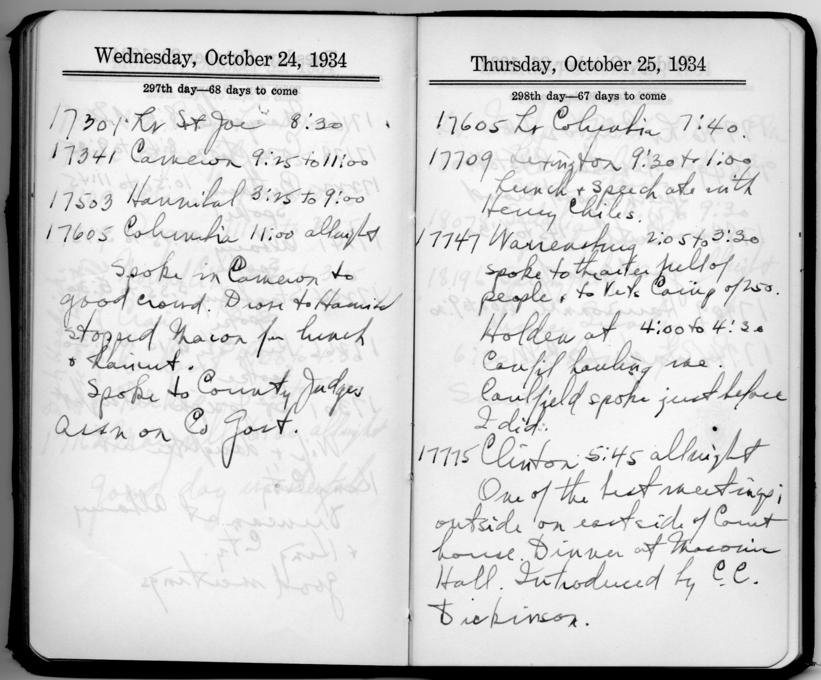 Wednesday, October 24, 1934
297th day—68 days to come
17301 Lv St Joe 8:30
17341 Cameron 9:25 to 11:00
17503 Hannibal 3:25 to 9:00
17605 Columbia 11:00 allnight
Spoke in Cameron to
good crowd. Drove to Hannibal
stopped Macon for lunch
& haircut.
Spoke to County Judges
assn on Co Govt.
Thursday, October 25, 1934
298th day—67 days to come
17605 Lv Columbia 7:40.
17709 Lexington 9:30 to 1:00
Lunch & speech ate with
Henry Chiles.
17747 Warrensburg 2:05 to 3:30
spoke to theater full of
people & to Vets Camp of 250.
Holden at 4:00 to 4:30
hauling me.
Caulfield spoke just before
I did.
17775 Clinton 5:45 allnight
One of the best meetings;
outside on east side of Court
house. Dinner at Masonic
Hall. Introduced by C.C.
Dickinson.